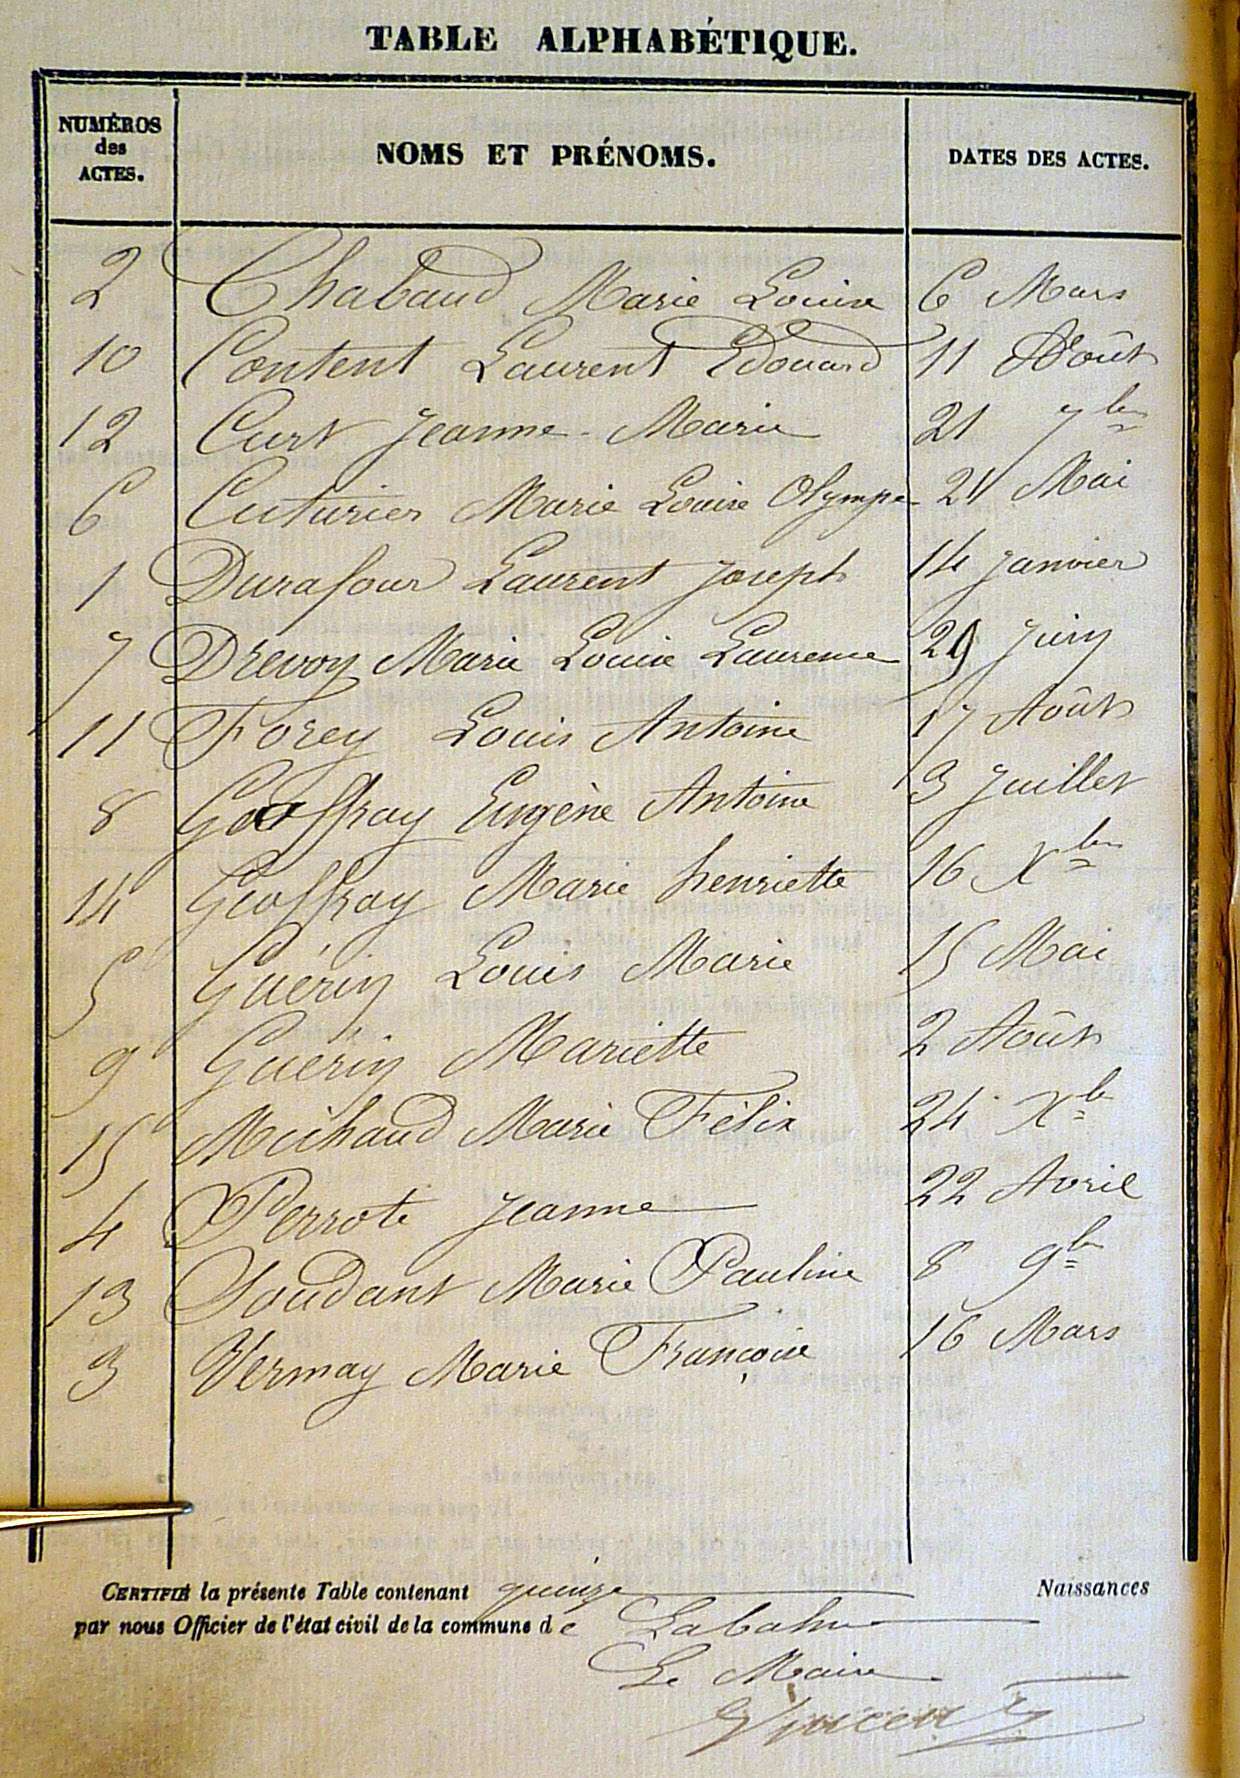 TABLE ALPHABÉTIQUE.
NUMÉROS des ACTES. NOMS ET PRÉNOMS. DATES DES ACTES.
2 Chabaud Marie Louise 6 Mars
10 Content Laurent Edouard 11 Août
12 Curt Jeanne-Marie 21 7bre
6 Cuturier Marie Louise Olympe 21 Mai
1 Durafour Laurent Joseph 14 Janvier
7 Drevoy Marie Louise Laurence 29 Juin
11 Forey Louis Antoine 17 Août
8 Geoffray Eugène Antoine 3 Juillet
14 Geoffray Marie henriette 16 Xbre
5 Guérin Louis Marie 15 Mai
9 Guérin Mariette 2 Août
15 Michaud Marie Félix 24 Xb
4 Perrote Jeanne 22 Avril
13 Soudant Marie Pauline 8 9b
3 Vermay Marie Françoise 16 Mars
CERTIFIÉ la présente Table contenant quinze Naissances
par nous Officier de l'état civil de la commune de
Le Maire
Vincent